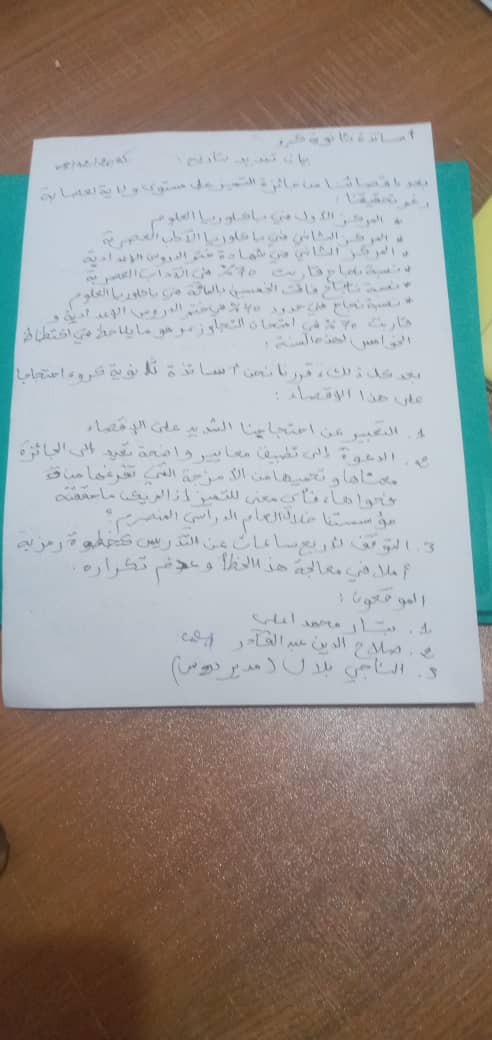 أساتذة ثانوية كرو
بيان تنديد بتاريخ:
بعد إقصائنا من جائزة التميز على مستوى ولاية لعصابة
رغم تحقيقنا:
* المركز الأول في باكلوريا العلوم
* المركز الثاني في باكلوريا الآداب العصرية
* المركز الثاني في شهادة ختم الدروس الإعدادية
* نسبة نجاح قاربت 70% في الآداب العصرية
* نسبة نجاح فاقت الخمسين بالمائة في باكلوريا العلوم
* نسبة نجاح في حدود % في ختم الدروس الإعدادية و
قاربت 70% في امتحان التجاوز وهو ما يلاحظ في اكتظاظ
الخوامس لهذه السنة.
بعد كل ذلك، قررنا نحن أساتذة ثانوية كرو احتجاجا
على هذا الإقصاء:
1. التعبير عن احتجاجنا الشديد على الإقصاء
2. الدعوة إلى تطبيق معايير واضحة تعيد إلى الجائزة
معناها وتحميها من الأمزجة التي تفرغها من
فحواها، فأي معنى للتميز إذا لم يكن ما حققته
مؤسستنا خلال العام الدراسي المنصرم؟
3. التوقف لأربع ساعات عن التدريس كخطوة رمزية
أملا في معالجة هذا الخطأ وعدم تكراره.
الموقعون:
1. محمد
2. صلاح الدين عبد القادر
3. الناجي بلال (مدير دروس)